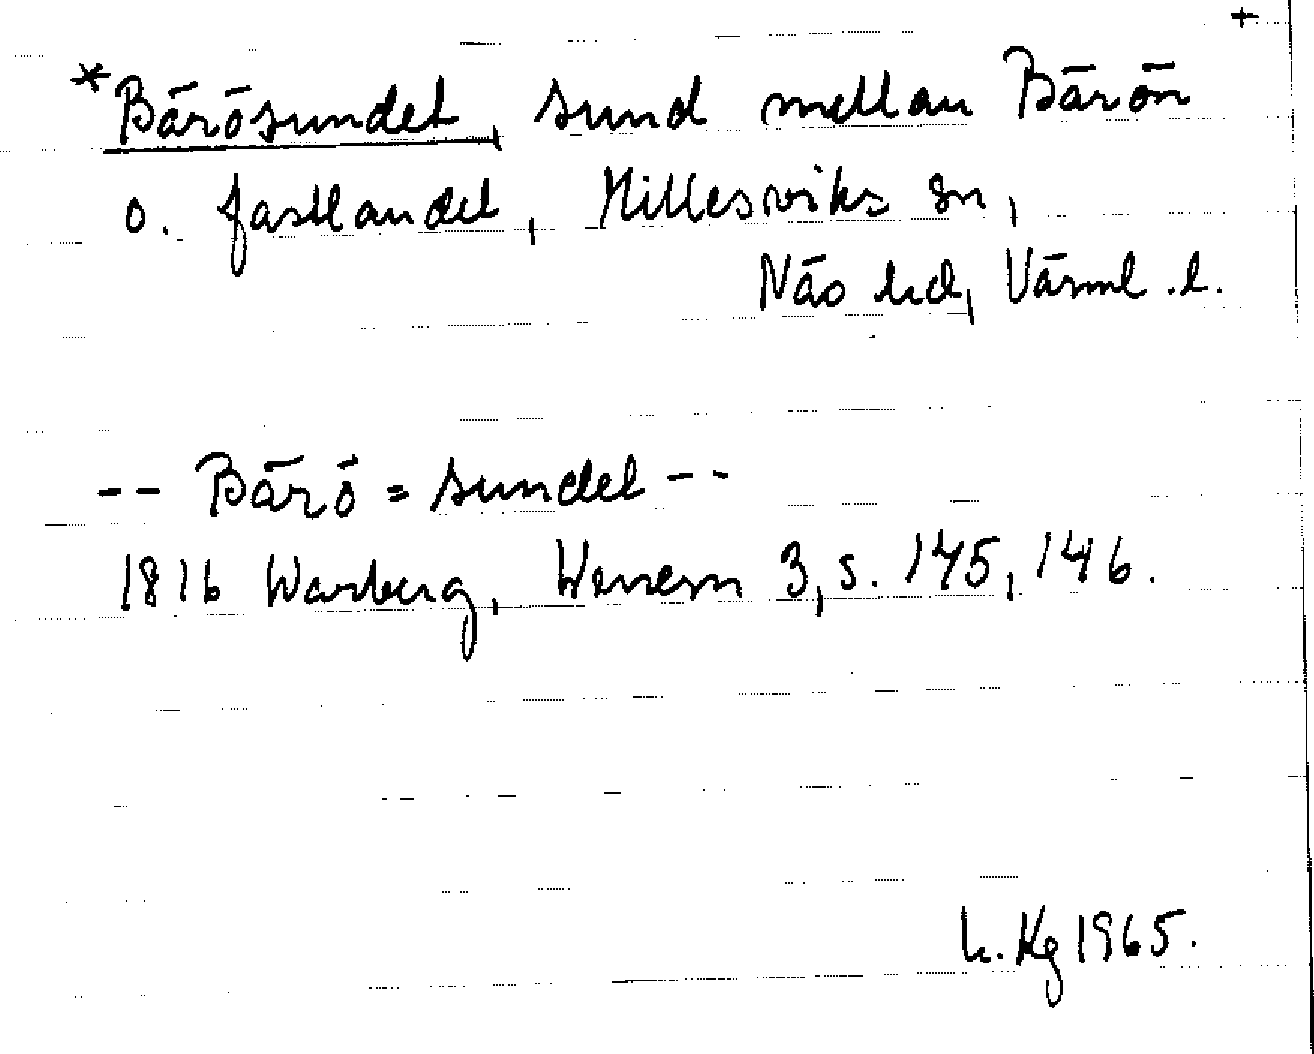 +
*Bärösundet, sund mellan Bärön
o. fastlandet, Millesviks sn,
Näs hd, Värml. l.
-- Bärö=sundet --
1816 Warberg, Wenern 3, s. 145, 146.
Kg 1965.